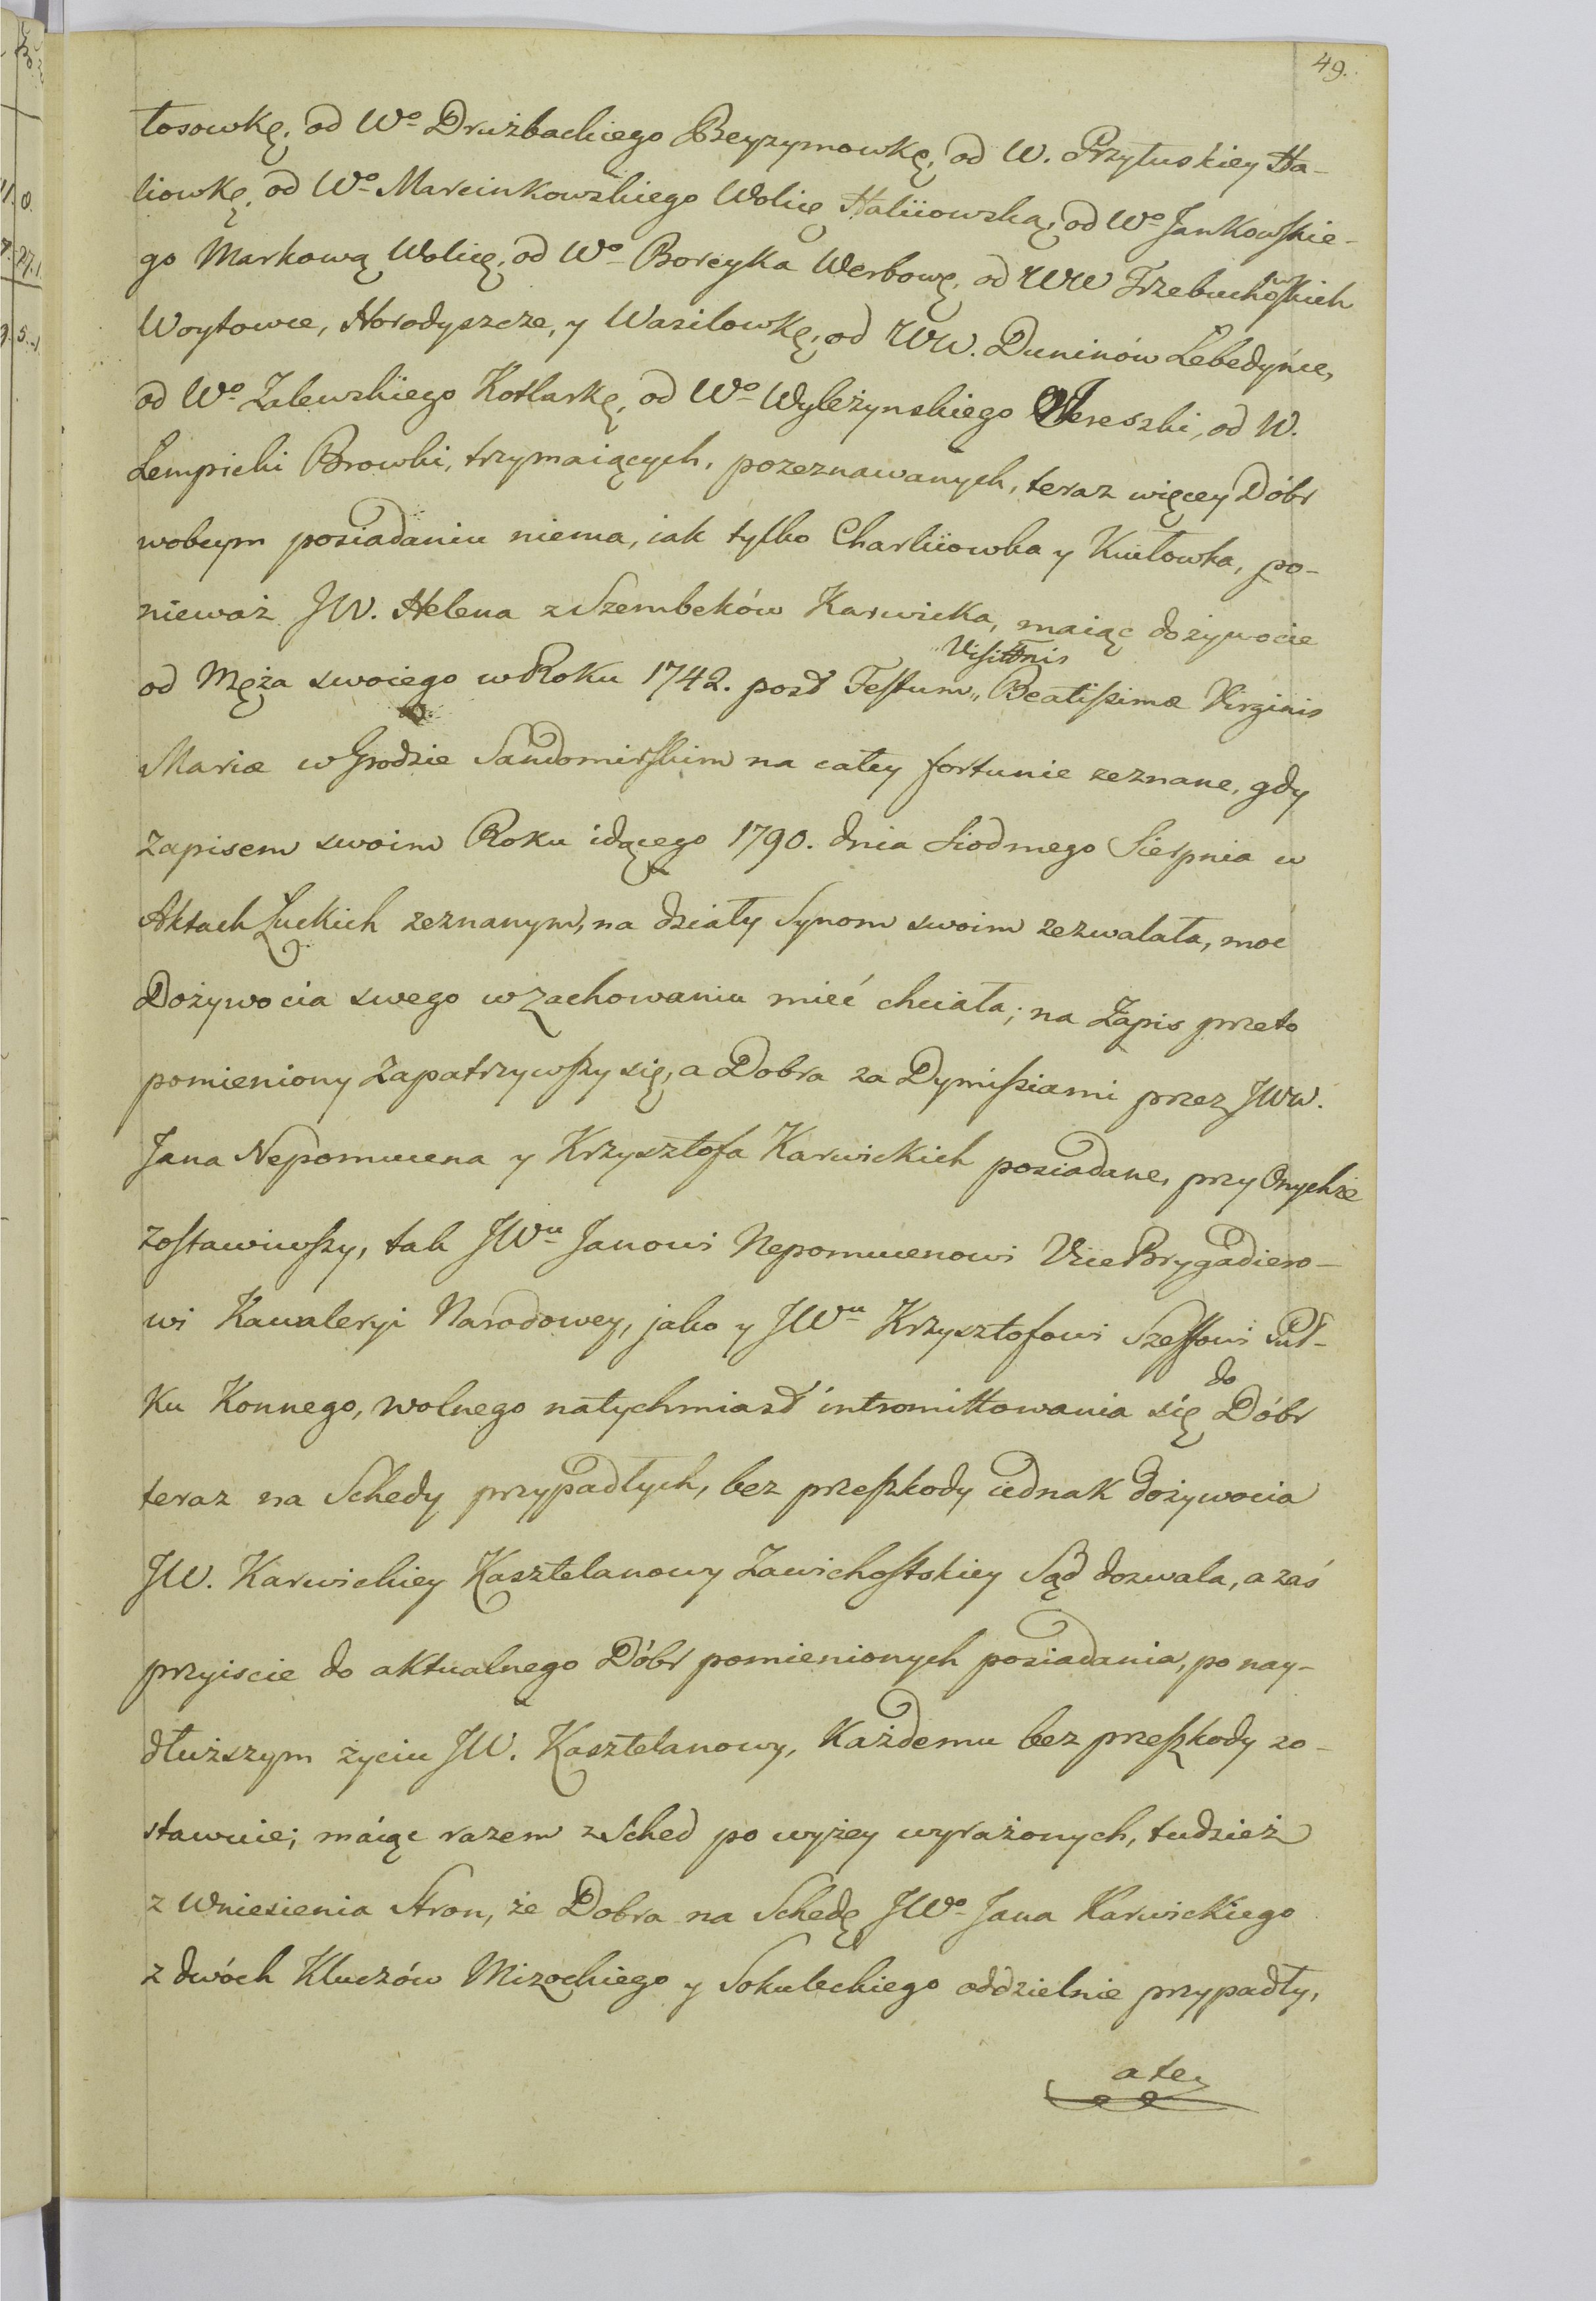 49.
łosowkę, od Wo Drużbackiego Beyzymowkę, od W. Przyłuskiey Ha-
liowkę, od Wo Marcinkowskiego Wolicę Haliiowską, od Wo Jankowskie-
go Markową Wolicę, od Wo Boreyka Werbowę, od WW Trzebuchowskich
Woytowce, Horodyszcze, y Wasilowkę, od WW. Duninów Lebedyńce,
od Wo Zalewskiego Kotlarkę, od Wo Wyleżynskiego Jereszki, od W.
Lempicki Browki, trzymaiących, pozeznawanych, teraz więcey Dóbr
wobcym posiadaniu niema, iak tylko Charliiowka y Kutowka, po-
nieważ JW. Helena z Szembeków Karwicka, maiąc dożywocie
od Męża swoiego w Roku 1742. post Festum Visittnis Beatissimæ Virginis
Mariæ w Grodzie Sandomirskim na całey fortunie zeznane, gdy
Zapisem swoim Roku idącego 1790. dnia Siodmego Sierpnia w
Aktach Łuckich zeznanym, na działy Synom swoim zezwalała, moc
Dożywocia swego w zachowaniu mieć chciała; na Zapis przeto
pomieniony Zapatrzywszy się, a Dobra za Dymissiami przez JWW.
Jana Nepomucena y Krzysztofa Karwickich posiadane, przy Onychże
zostawiwszy, tak JWu Janowi Nepomucenowi Vice Brygadiero-
wi Kawaleryi Narodowey, jako y JWu Krzysztofowi Szeffowi Puł-
ku Konnego, wolnego natychmiast intromittowania się do Dóbr
teraz na Schedy przypadłych, bez przeszkody iednak dożywocia
JW. Karwickiey Kasztelanowy Zawichostskiey Sąd dozwala, a zaś
przyiscie do aktualnego Dóbr pomienionych posiadania, po nay-
dłuższym życiu JW. Kasztelanowy, Każdemu bez przeszkody zo-
stawuie; maiąc razem z Sched po wyżey wyrażonych, tudzież
z Wniesienia Stron, że Dobra na Schedę JWo Jana Karwickiego
z dwóch Kluczów Mizockiego y Sokuleckiego oddzielnie przypadły,
a tey